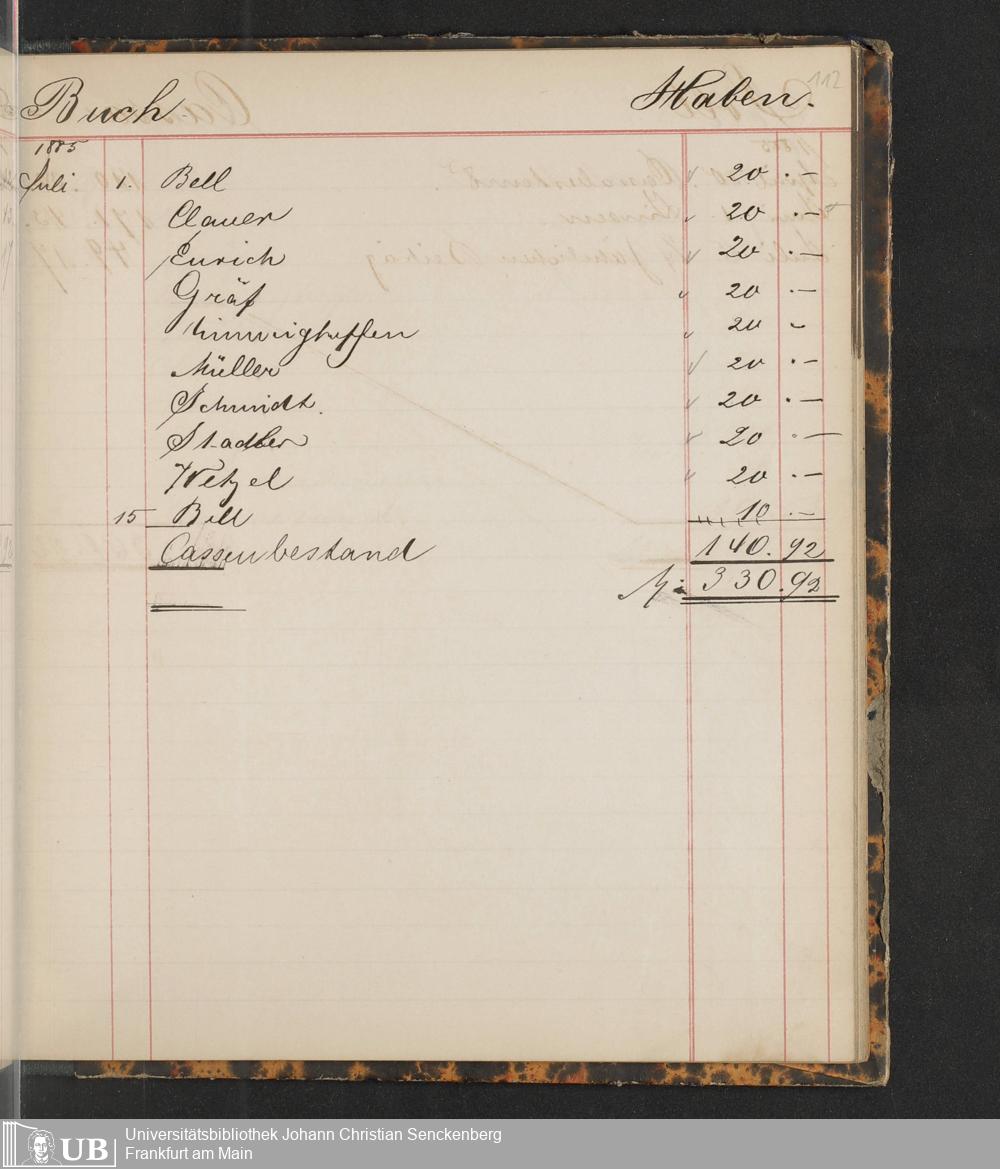 112
Buch Haben.
1885
Juli 1. Bell 20 . –
Clauer 20 . –
Enrich 20 . –
Gräf 20 . –
20 –
Müller 20 . –
Schmidt. 20 . –
Stadler 20 . –
Wetzel 20 . –
15 Bell 10 . –
Cassenbestand 140. 92
M: 330. 92
UB
Universitätsbibliothek Johann Christian Senckenberg
Frankfurt am Main